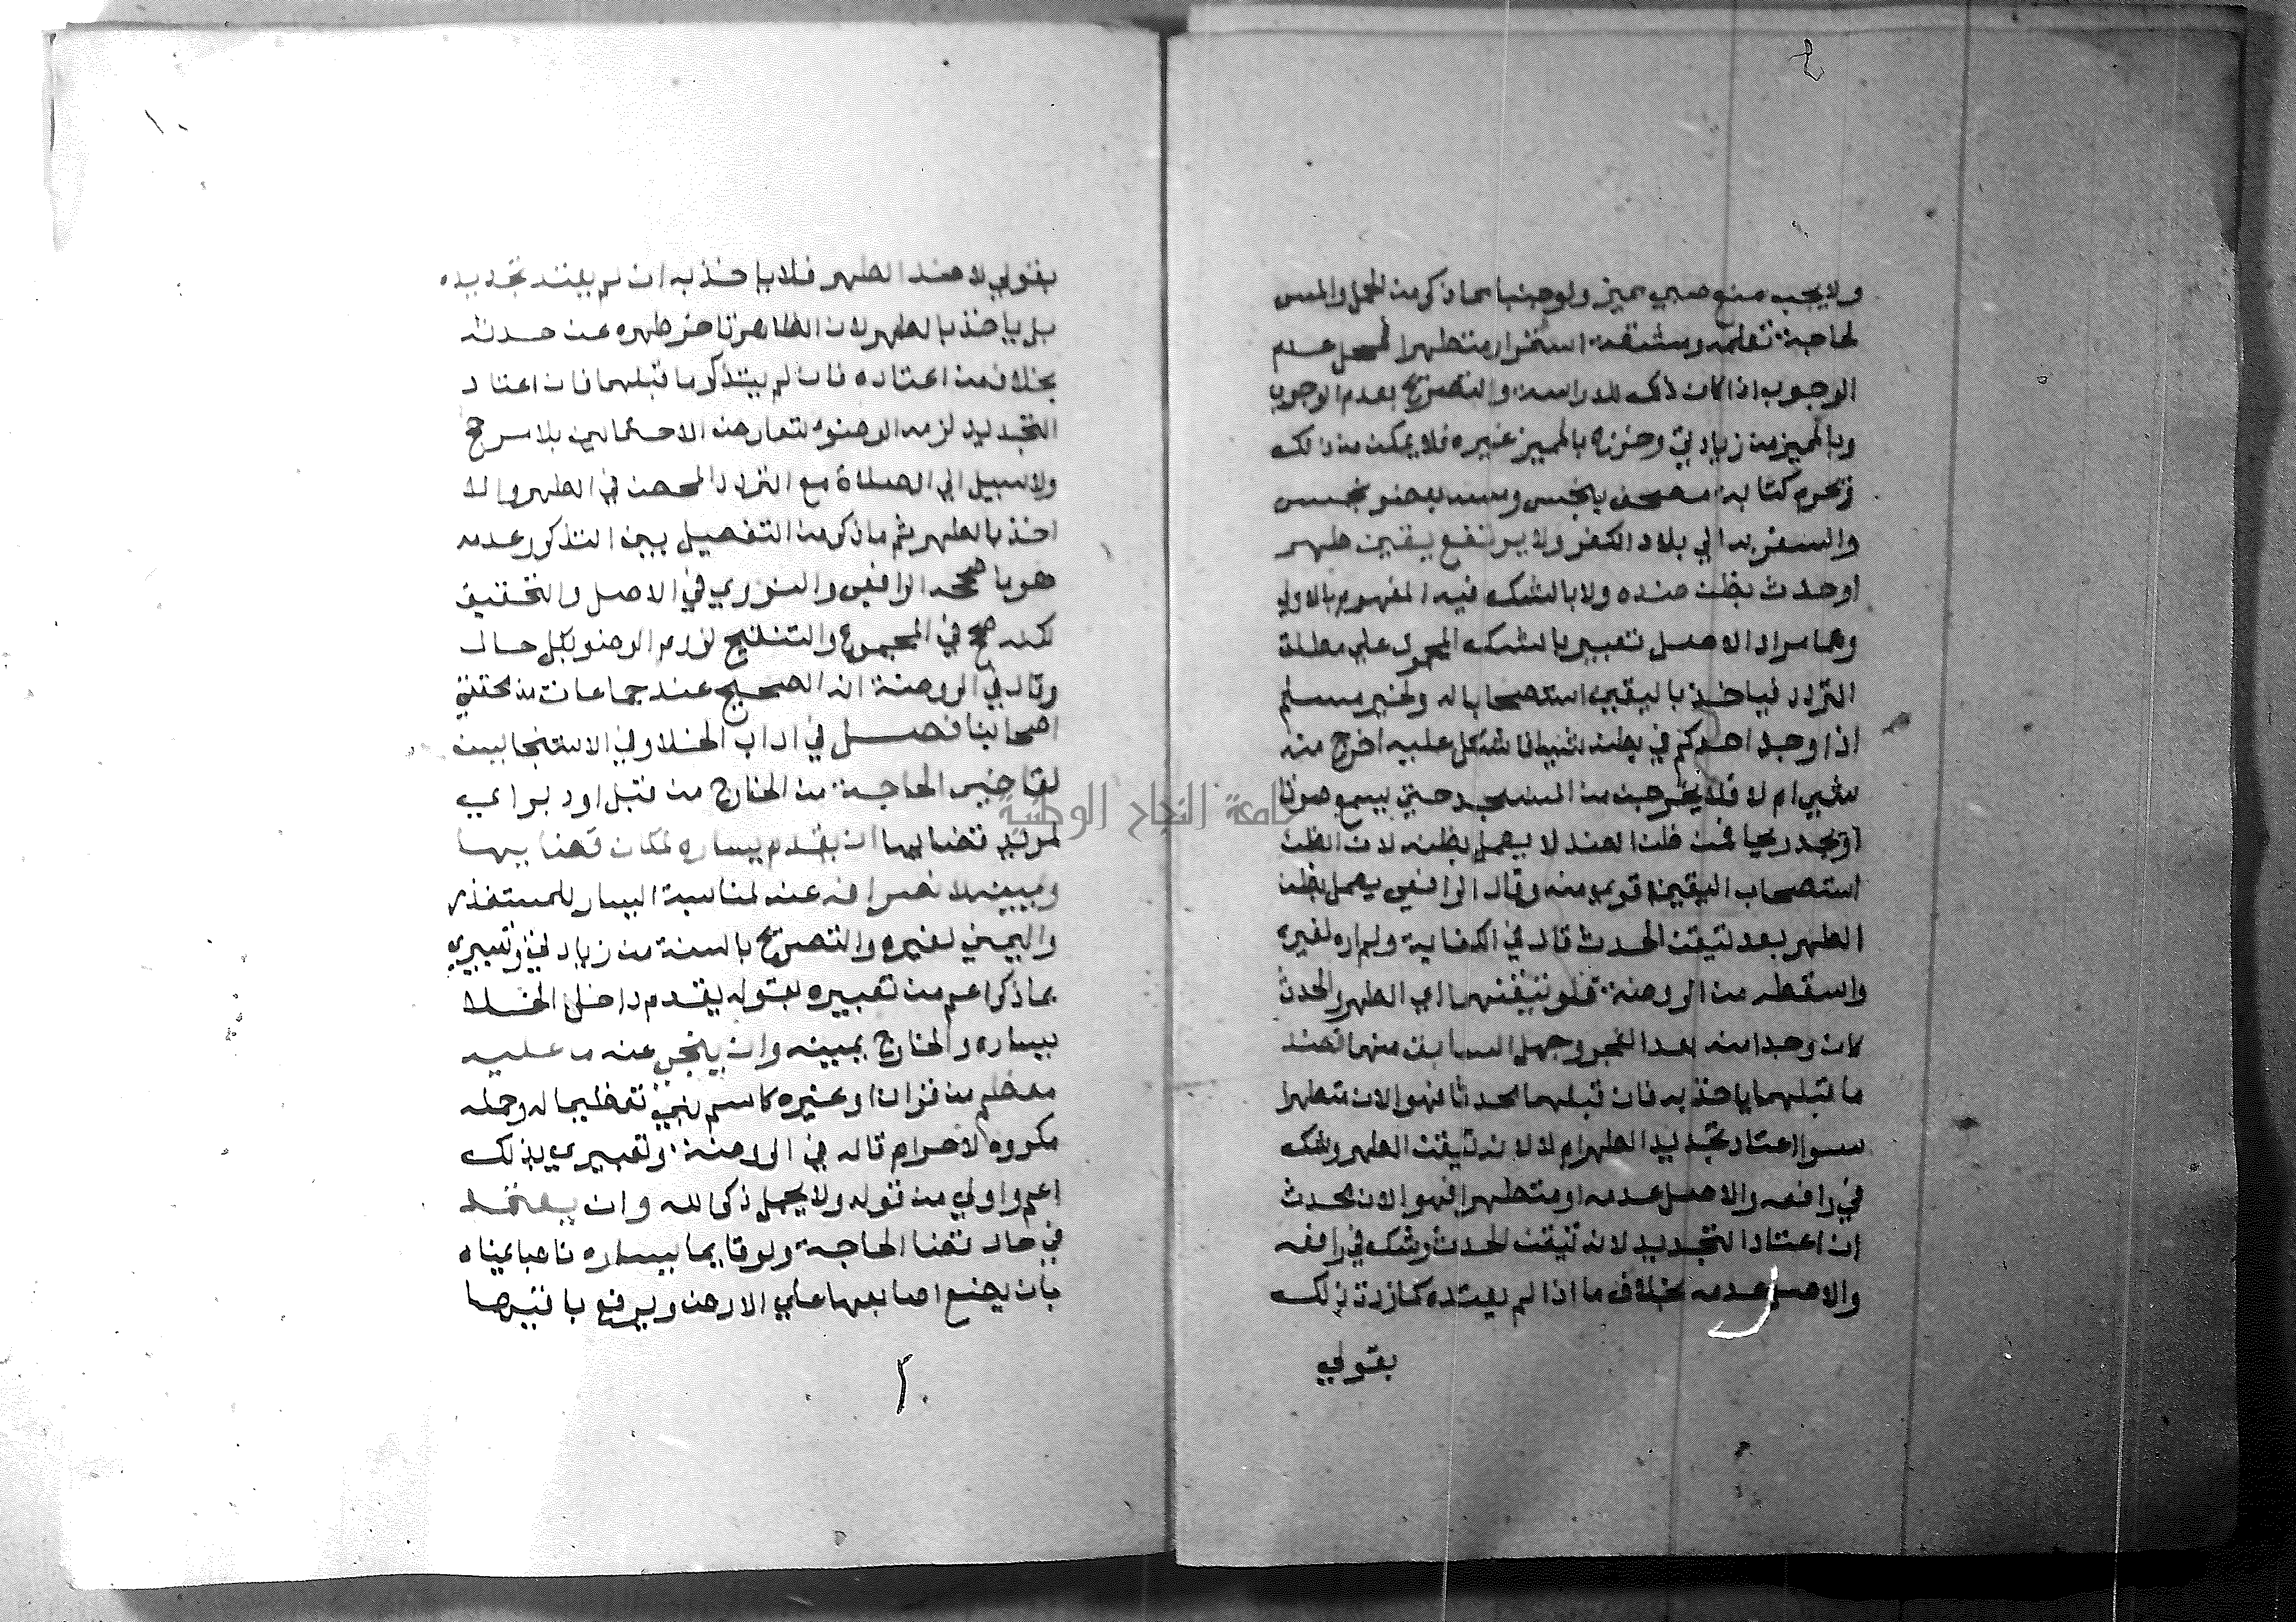 ولا يجب منع صبي مميز ولو جنبا مما ذكر من الحمل والمس
لحاجة تعلمه ومشقة استمراره متطهرا فمحل عدم
الوجوب اذا كان ذلك للدراسة والتصريح بعدم الوجوب
وبالمميز من زيادتي وخرج بالمميز غيره فلا يمكن من ذلك
وتحرم كتابة مصحف بنجس ومسه بعضو نجس
والسفر به الي بلاد الكفر ولا يرتفع يقين طهر
او حدث بظن ضده ولا بالشك فيه المفهوم بالاولي
وهما مراد الاصل بتعبير بالشك المحمول علي مطلق
التردد فياخذ باليقين استصحابا له ولخبر مسلم
اذا وجد احدكم في بطنه شيئا فاشكل عليه اخرج منه
شيي ام لا فلا يخرجن من المسجد حتي يسمع صوتا
او يجد ريحا فمن ظن الضد لا يعمل بظنه لان الظن
استصحاب اليقين اقوي منه وقال الرافعي يعمل بظن
الطهر بعد تيقن الحدث قال في الكفاية ولم اره لغيره
واسقطه من الروضة فلو تيقنهما اي الطهر والحدث
كان وجدا منه بعد الفجر وجهل السابق منهما فضد
ما قبلهما ياخذ به فان قبلهما محدثا فهو الان متطهرا
سوا اعتاد تجديد الطهر ام لا لانه تيقن الطهر وشك
في رافعه والاصل عدمه او متطهرا فهو الان محدث
ان اعتاد التجديد لانه تيقن الحدث وشك في رافعه
والاصل عدمه بخلاف ما اذا لم يعتده كما زدت ذلك
بقولي
بقولي لا ضد الطهر فلا ياخذ به ان لم يعتد تجديده
بل ياخذ بالطهر لان الظاهر تاخر طهره عن حدثه
بخلاف من اعتاده فان لم يتذكر ما قبلهما فان اعتاد
التجديد لزمه الوضوء لتعارض الاحتمالين بلا مرجح
ولا سبيل الي الصلاة مع التردد المحض في الطهر والا
اخذ بالطهر ثم ما ذكر من التفصيل بين التذكر وعدمه
هو ما صححه الرافعي والنووي في الاصل والتحقيق
لكنه صحح في المجموع والتنقيح لزوم الوضو بكل حال
وقال في الروضة انه الصحيح عند جماعات من محققي
اصحابنا فصل في اداب الخلا وفي الاستنجا يسن
لقاضي الحاجة من الخارج من قبل او دبر اي
لمريد قضائها ان يقدم يساره لمكان قضائها
ويمينه لانصرافه عنه لمناسبة اليسار للمستقذر
واليمين لغيره والتصريح بالسنة من زيادتي وتعبيري
بما ذكر اعم من تعبيره بقوله يقدم داخل الخلا
يساره والخارج يمينه وان ينحي عنه ما عليه
معظم من قران او غيره كاسم نبي تعظيما له وحمله
مكروه لا حرام قاله في الروضة وتعبيري بذلك
اعم واولي من قوله ولا يحمل ذكر الله وان يعتمد
في حال قضا الحاجة ولو قايما يساره ناصبا يمناه
بان يضع اصابعها علي الارض ويرفع باقيها
جامعة النجاح الوطنية